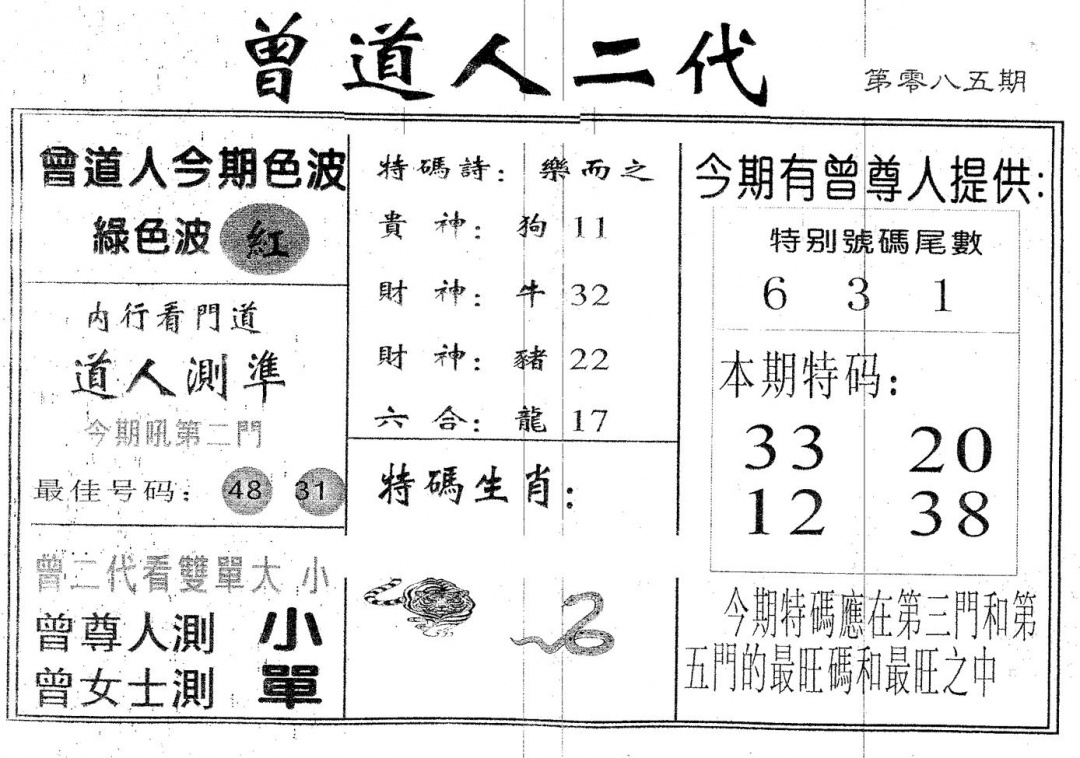 曾道人二代
第零八五期
曾道人今期色波
綠色波 紅
内行看門道
道人測準
今期吼第二門
最佳号码： 48 31
曾二代看雙單大 小
曾尊人測 小
曾女士測 單
特碼詩： 樂而之
貴 神： 狗 11
財 神： 牛 32
財 神： 豬 22
六 合： 龍 17
特碼生肖：
今期有曾尊人提供：
特别號碼尾數
6 3 1
本期特码：
33 20
12 38
今期特碼應在第三門和第
五門的最旺碼和最旺之中